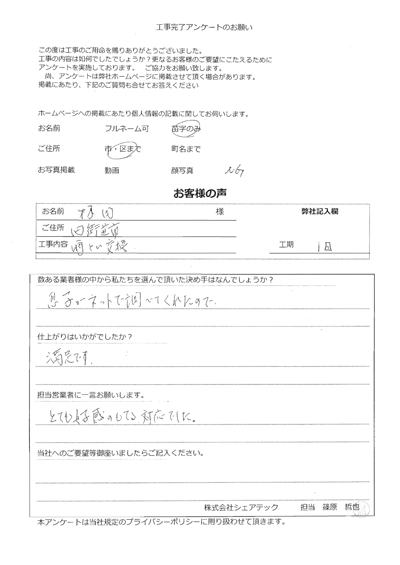 工事完了アンケートのお願い
この度は工事のご用命を賜りありがとうございました。
工事の内容は如何でしたでしょうか？更なるお客様のご要望にこたえるために
アンケートを実施しております。 ご協力をお願い致します。
尚、アンケートは弊社ホームページに掲載させて頂く場合があります。
掲載にあたり、下記のご質問も合せてお答えください
ホームページへの掲載にあたり個人情報の記載に関してお伺いします。
お名前 フルネーム可 苗字のみ
ご住所 市・区まで 町名まで
お写真掲載 動画 顔写真 NG
お客様の声
お名前 様 弊社記入欄
ご住所 四街道市
工事内容 雨とい交換 工期 1日
数ある業者様の中から私たちを選んで頂いた決め手はなんでしょうか？
息子がネットで調べてくれたので
仕上がりはいかがでしたか？
満足です
担当営業者に一言お願いします。
とても好感のもてる対応でした。
当社へのご要望等御座いましたらご記入ください。
株式会社シェアテック 担当 篠原 哲也
本アンケートは当社規定のプライバシーポリシーに則り扱わせて頂きます。